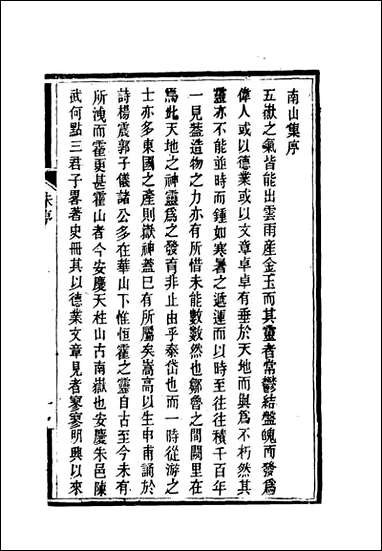 南山集序
五嶽之氣皆能出雲雨產金玉而其靈者常鬱結盤魄而發爲
偉人或以德業或以文章卓卓有垂於天地而與爲不朽然其
靈亦不能並時而鍾如寒暑之遞運而以時至往往積千百年
一見蓋造物之力亦有所惜未能數數然也鄒魯之間闕里在
焉此天地之神靈爲之發育非止由乎泰岱也而一時從游之
士亦多東國之產則嶽神蓋已有所屬矣嵩高以生申甫誦於
詩楊震郭子儀諸公多在華山下惟恒霍之靈自古至今未有
所洩而霍更甚霍山者今安慶天柱山古南嶽也安慶朱邑陳
武何點三君子畧著史冊其以德業文章見者寥寥明興以來
朱序
一